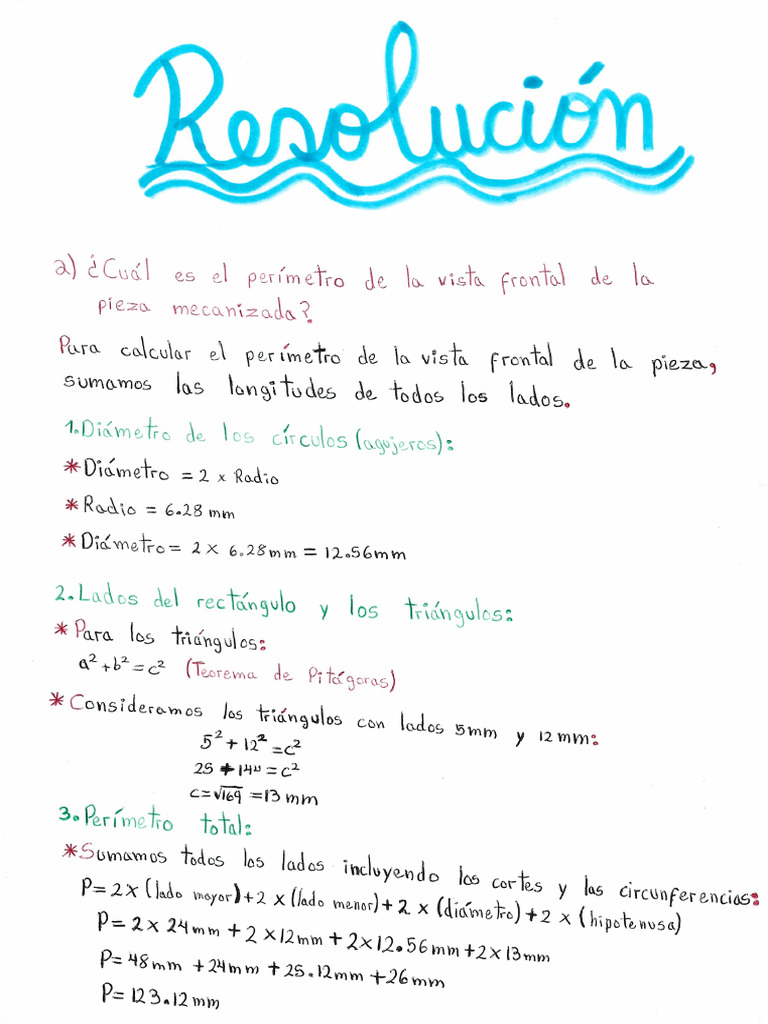 Resolución
a) ¿Cuál es el perímetro de la vista frontal de la
pieza mecanizada?
Para calcular el perímetro de la vista frontal de la pieza,
sumamos las longitudes de todos los lados.
1.Diámetro de los círculos (agujeros):
*Diámetro = 2 x Radio
*Radio = 6.28 mm
*Diámetro = 2 x 6.28mm = 12.56mm
2.Lados del rectángulo y los triángulos:
*Para los triángulos:
a²+b²=c² (Teorema de Pitágoras)
*Consideramos los triángulos con lados 5mm y 12mm:
5²+12²=c²
25 + 144=c²
c=√169 =13 mm
3.Perímetro total:
*Sumamos todos los lados incluyendo los cortes y las circunferencias:
P=2x(lado mayor)+2x(lado menor)+2x(diámetro)+2x(hipotenusa)
P=2x24mm+2x12mm+2x12.56mm+2x13mm
P=48mm+24mm+25.12mm+26mm
P=123.12mm